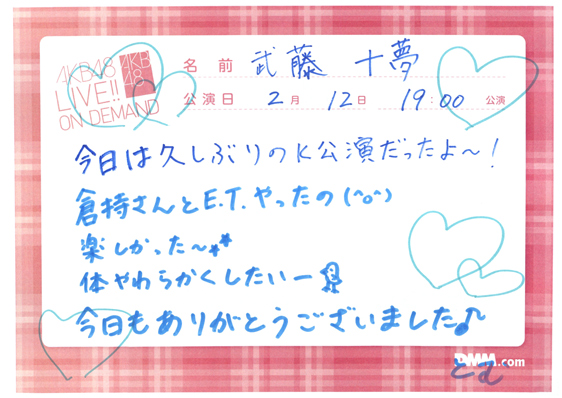 AKB48
LIVE!!
ON DEMAND
AKB
48
名前 武藤 十夢
公演日 2月 12日 19:00 公演
今日は久しぶりのK公演だったよ〜!
倉持さんとE.T.やったの(^o^)
楽しかった〜
体やわらかくしたいー
今日もありがとうございました♪
DMM.com
とむ